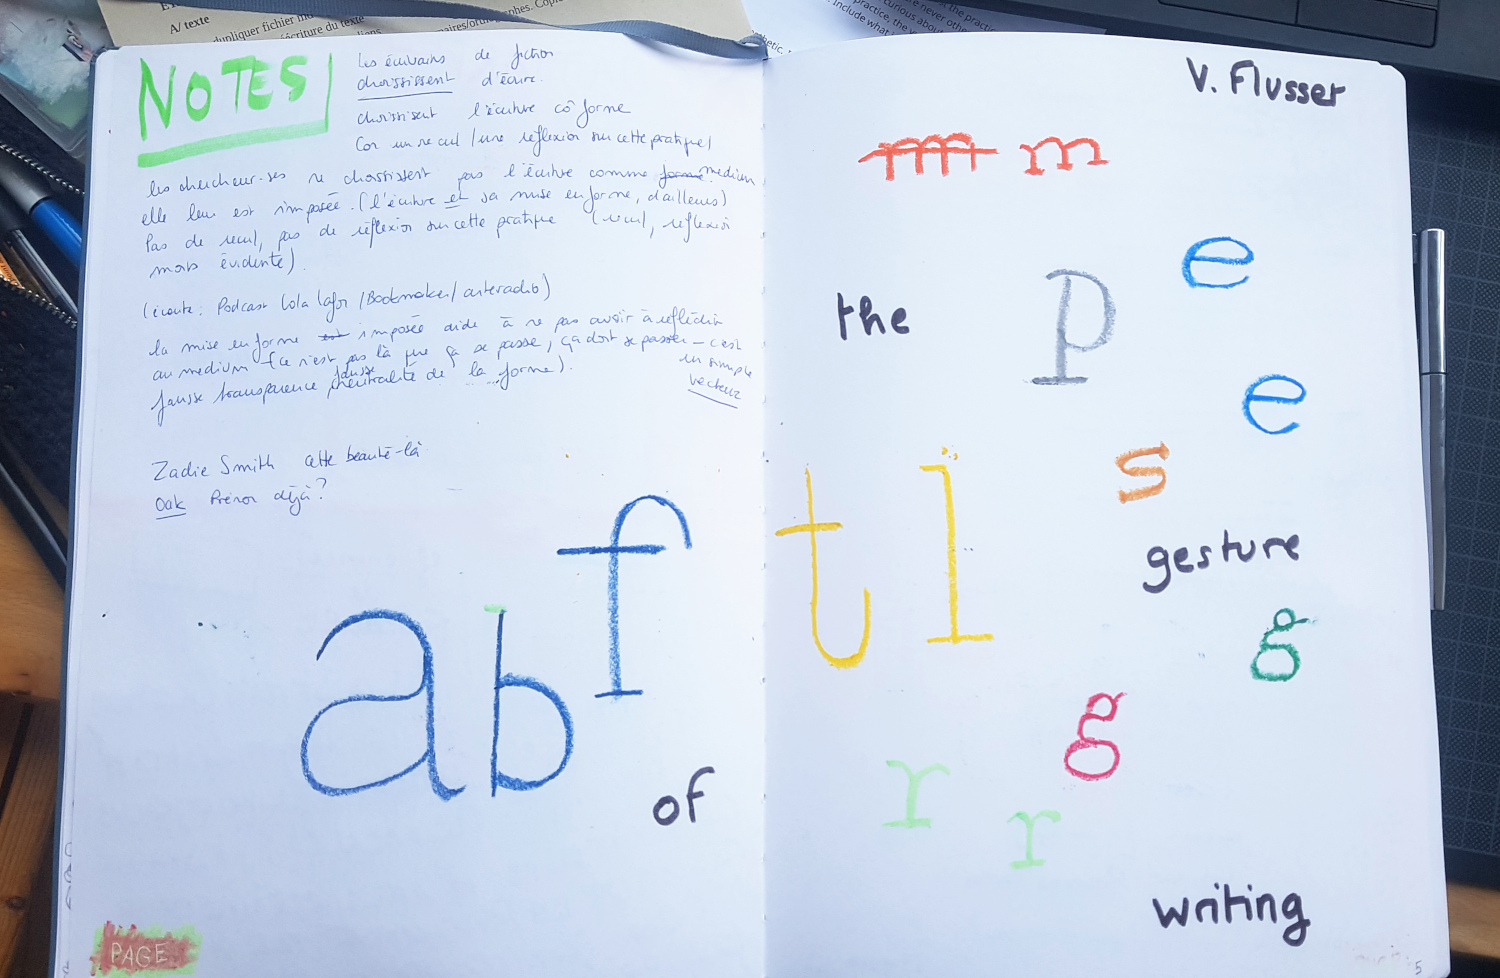 A/ texte
dupliquer fichier
écriture du texte
NOTES
les écrivains de fiction
choisissent d'écrire.
choisissent l'écriture cô forme
Car un recul / une réflexion sur cette pratique /
les chercheur·ses ne choisissent pas l'écriture comme forme medium
elle leur est imposée. (l'écriture et sa mise en forme, d'ailleurs)
Pas de recul, pas de réflexion sur cette pratique (recul, réflexion
moins évidente).
(écoute: Podcast Lola Lafon /Bookmaker/ arteradio)
la mise en forme est imposée aide à ne pas avoir à réfléchir
au medium (ce n'est pas là que ça se passe, ça doit se passer – c'est
un simple
vecteur
fausse
fausse transparence / neutralité de la forme).
Zadie Smith cette beauté-là
Oak Prénom déjà?
a b f
of
PAGE
V. Flusser
m m
e
the p
e
s
t l
gesture
g
g
r r
writing
5